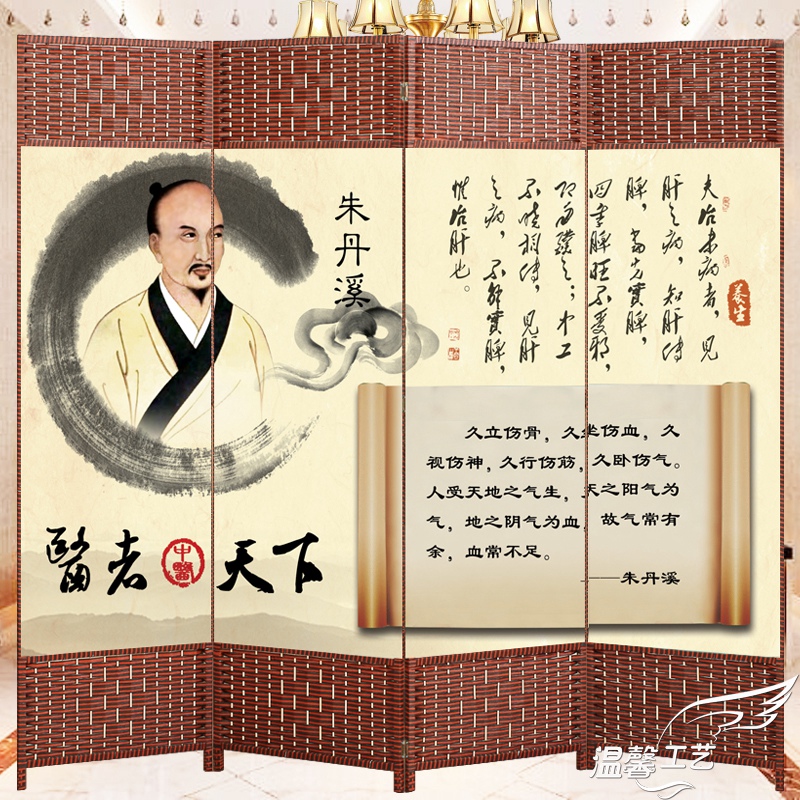 朱丹溪
醫者
中醫
天下
夫治未病者，见
肝之病，知肝传
脾，当先實脾，
四季脾旺不受邪，
即勿補之；中工
不晓相传，见肝
之病，不解實脾，
惟治肝也。
养生
久立伤骨，久坐伤血，久
视伤神，久行伤筋，久卧伤气。
人受天地之气生，天之阳气为
气，地之阴气为血，故气常有
余，血常不足。
——朱丹溪
温馨工艺